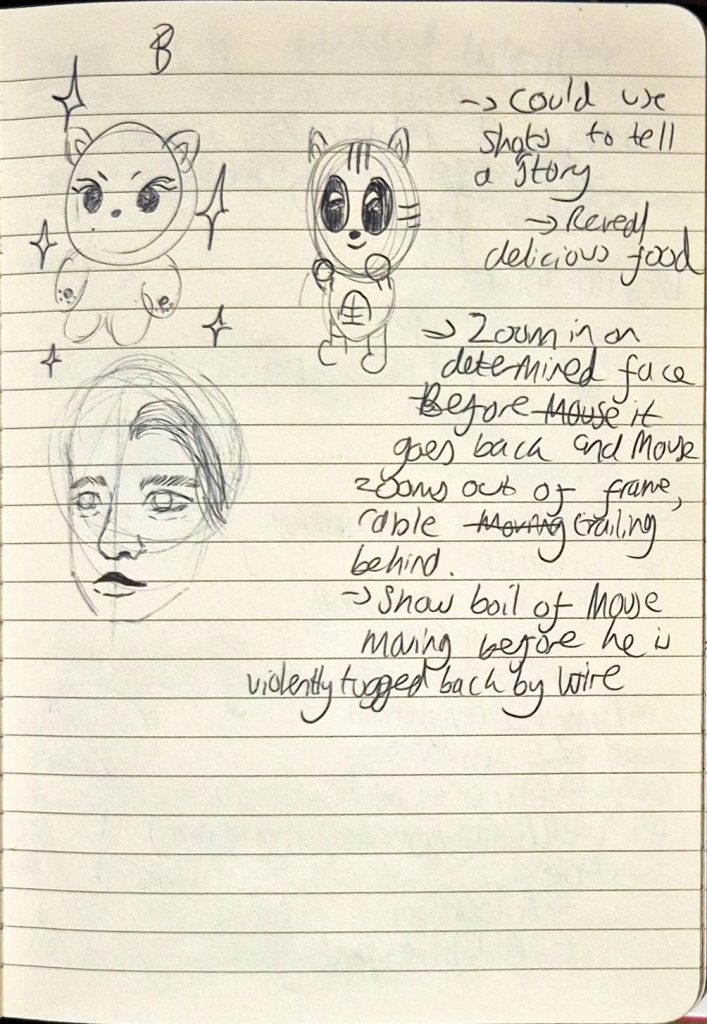 B
-> Could use
shots to tell
a story
-> Reveal
delicious food
-> Zoom in on
determined face
Before Mouse it
goes back and Mouse
zooms out of frame,
cable Moving trailing
behind.
-> Show boil of Mouse
moving before he is
violently tugged back by wire